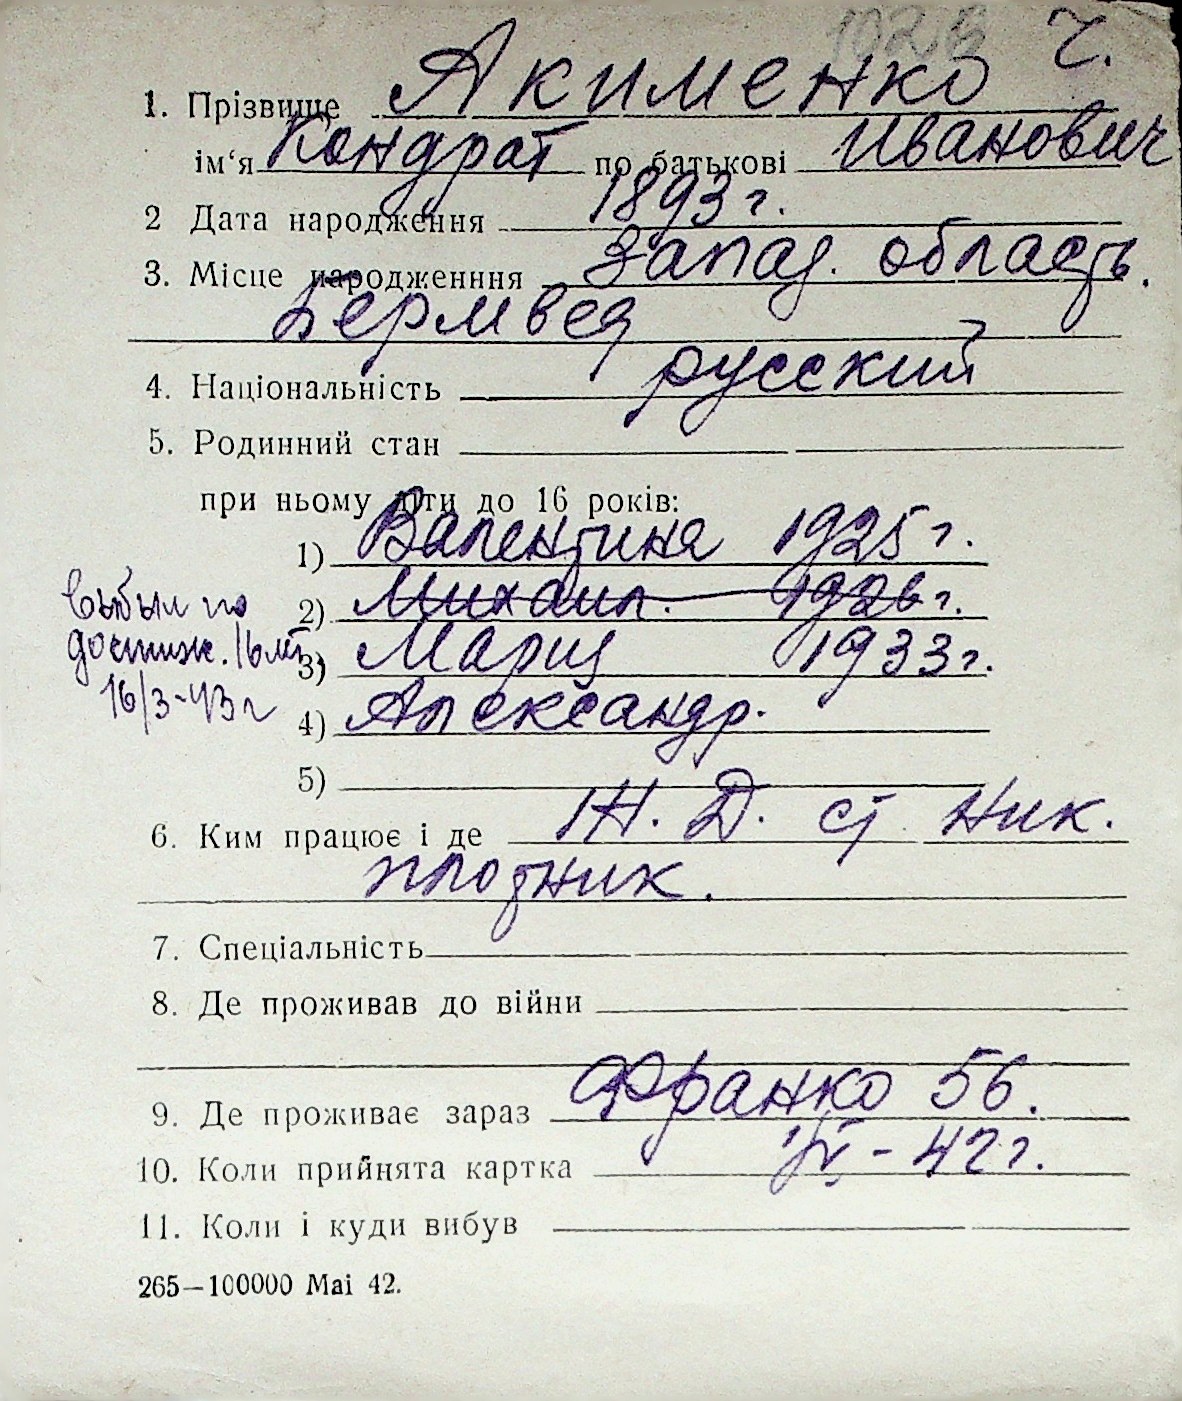 1028 Г.
1. Прізвище Акименко
ім‘я Кондрат по батькові Иванович
2 Дата народження 1893 г.
3. Місце народженння Запад. область.
4. Національність русский
5. Родинний стан
при ньому діти до 16 років:
1) Валентина 1925 г.
выбыл по 2) Михаил. 1926 г.
достиж. 16 лет 3) Мария 1933 г.
16/3-43 г 4) Александр.
5)
6. Ким працює і де Ж. Д. ст. Ник.
плотник.
7. Спеціальність
8. Де проживав до війни
9. Де проживає зараз Франко 56.
10. Коли прийнята картка - 42 г.
11. Коли і куди вибув
265—100000 Mai 42.